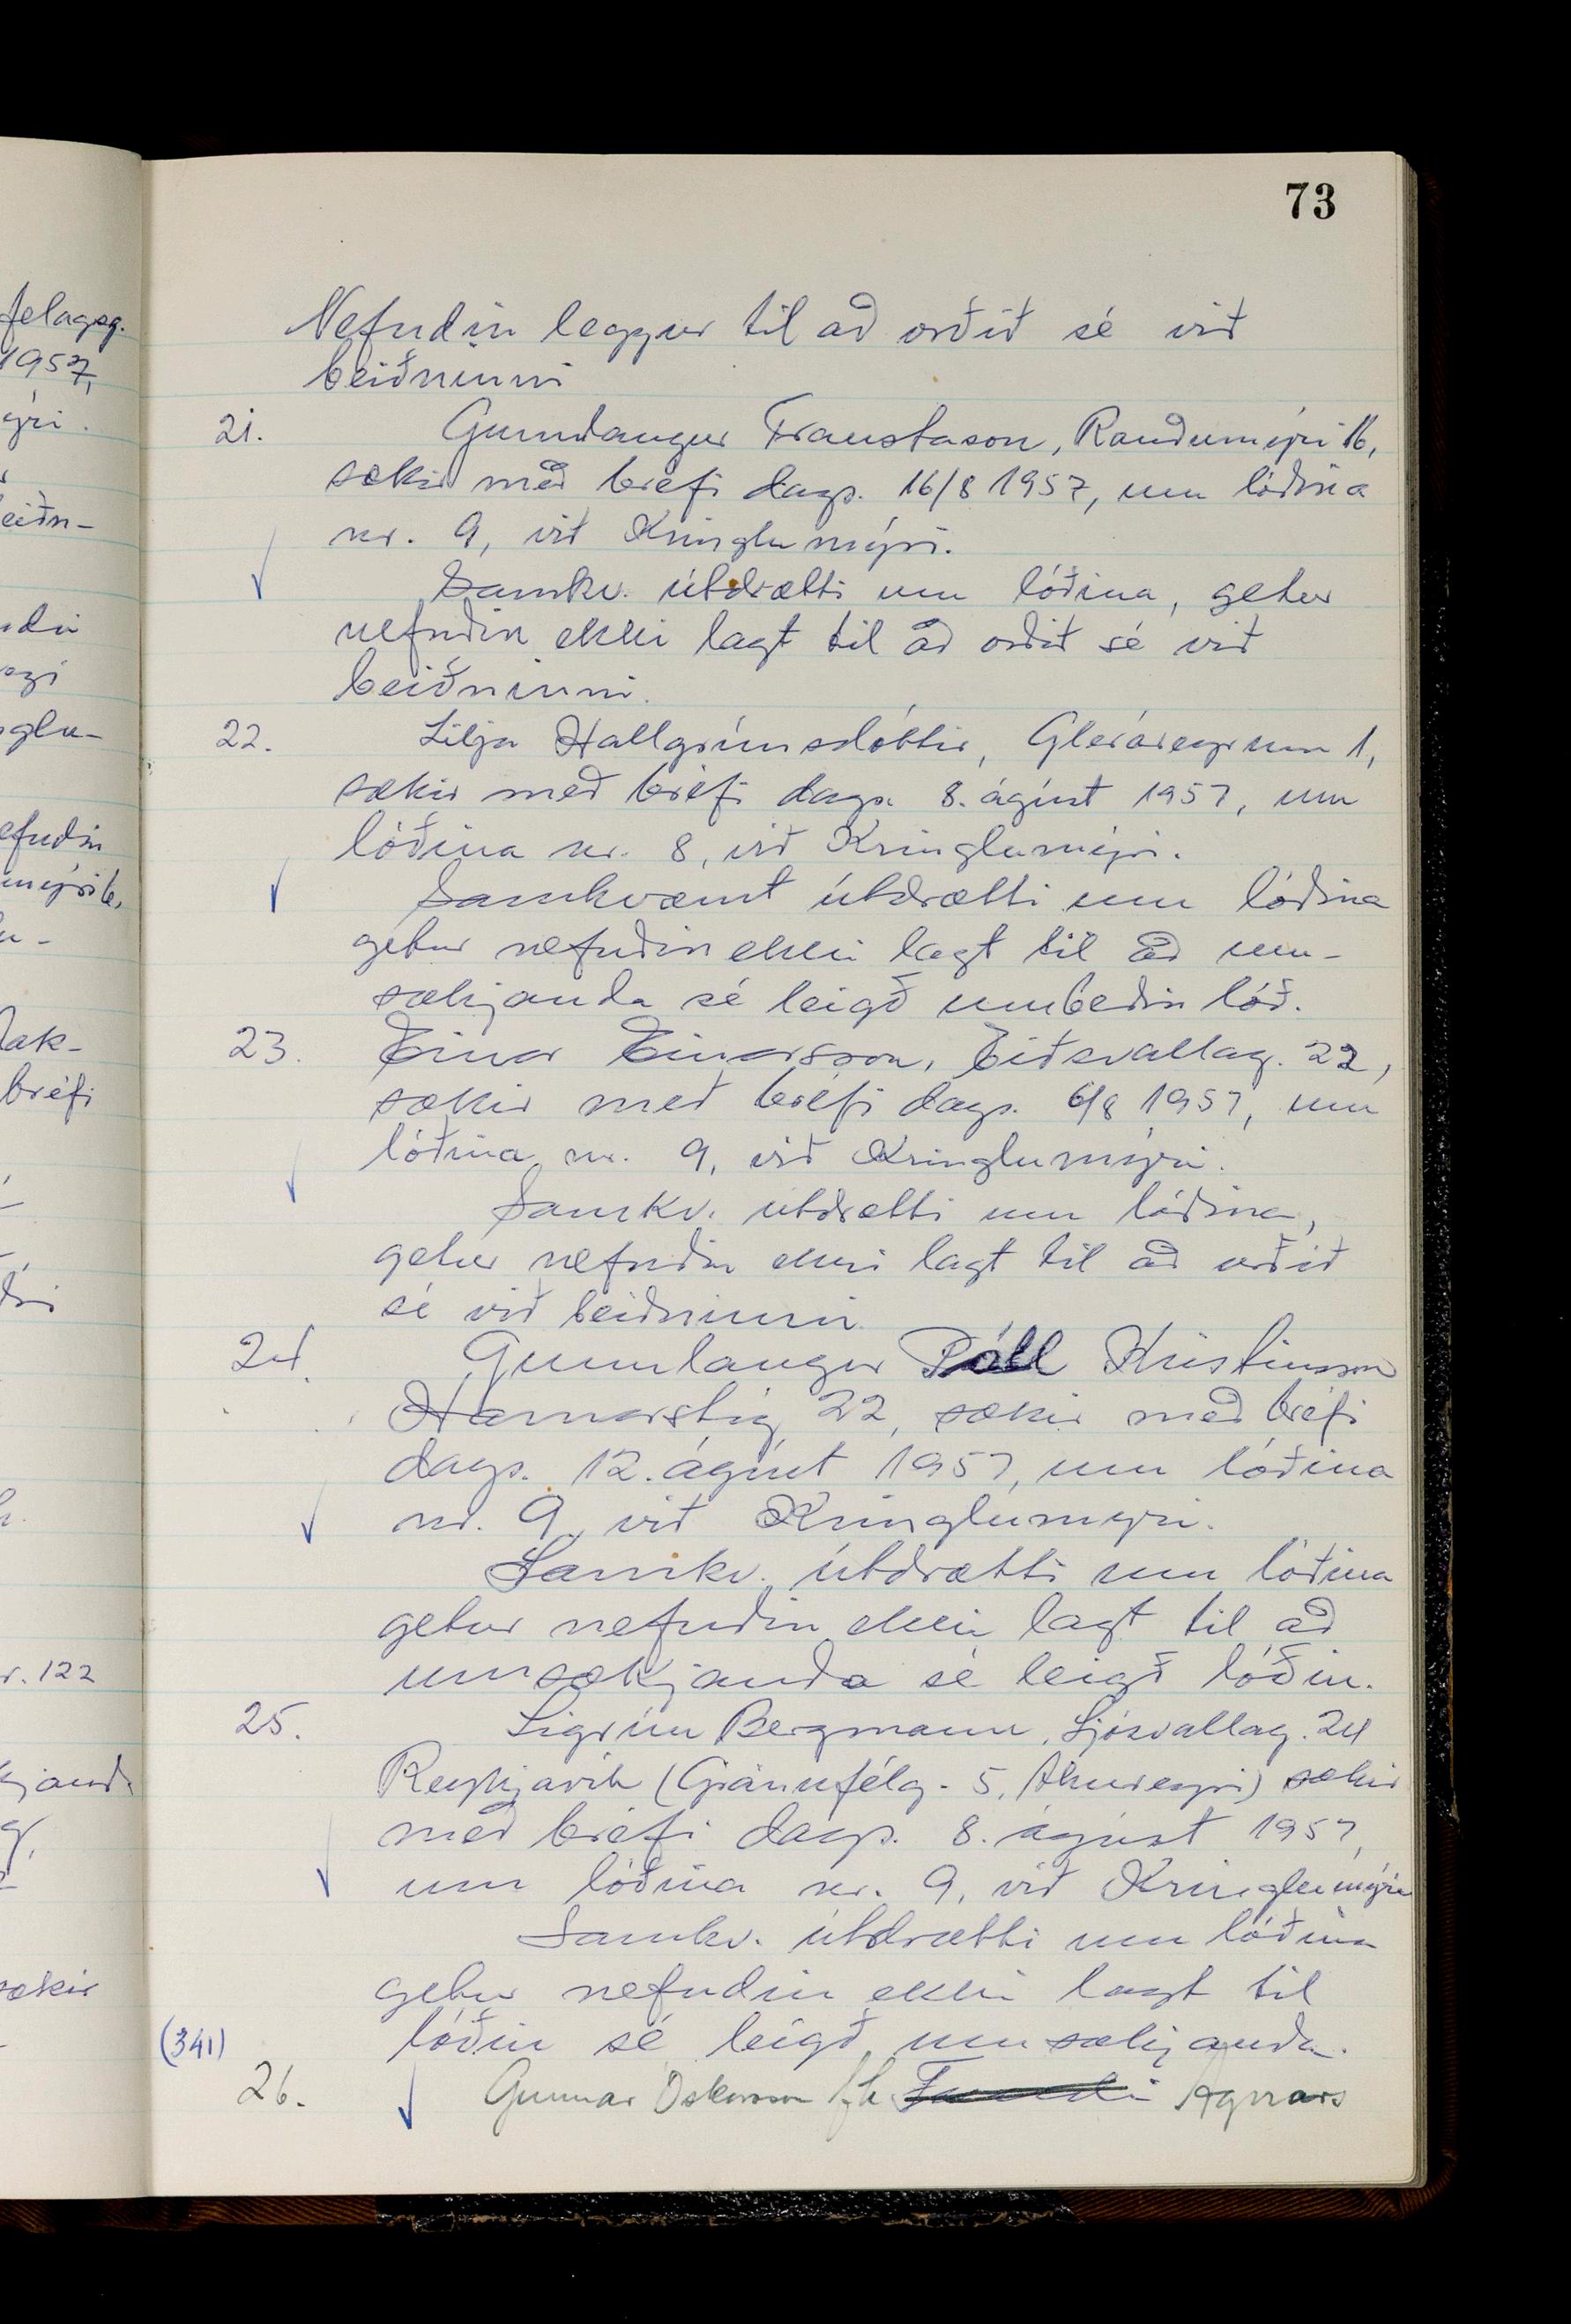 73
Nefndin leggur til að orðið sé við
beiðninni
21. Gunnlaugur Traustason, Rauðumýri 16,
sækir með bréfi dags. 16/8 1957, um lóðina
nr. 9, við Kringlumýri.
Samkv. útdrætti um lóðina, getur
nefndin ekki lagt til að orðið sé við
beiðninni.
22. Lilja Hallgrímsdóttir, Gleráreyrum 1,
sækir með bréfi dags. 8. ágúst 1957, um
lóðina nr. 8, við Kringlumýri.
Samkvæmt útdrætti um lóðina
getur nefndin ekki lagt til að um-
sækjanda sé leigð umbeðin lóð.
23. Einar Einarsson, Eiðsvallag. 22,
sækir með bréfi dags. 6/8 1957, um
lóðina nr. 9, við Kringlumýri.
Samkv. útdrætti um lóðina,
getur nefndin ekki lagt til að orðið
sé við beiðninni.
24. Gunnlaugur Páll Kristinsson
Hamarstíg 22, sækir með bréfi
dags. 12. ágúst 1957, um lóðina
nr. 9, við Kringlumýri.
Samkv. útdrætti um lóðina
getur nefndin ekki lagt til að
umsækjanda sé leigð lóðin.
25. Sigrún Bergmann, Ljósvallag. 24
Reykjavík (Gránufélg. 5, Akureyri) sækir
með bréfi dags. 8. ágúst 1957,
um lóðina nr. 9, við Kringlumýri
Samkv. útdrætti um lóðina
getur nefndin ekki lagt til
lóðin sé leigð umsækjanda.
(341)
26. Gunnar Óskarsson f.h. Agnars
felagsg.
1957,
ýri.
eiðn-
ndin
glu-
efndin
mýri 6,
bréfi
r. 122
kjanda
sækir